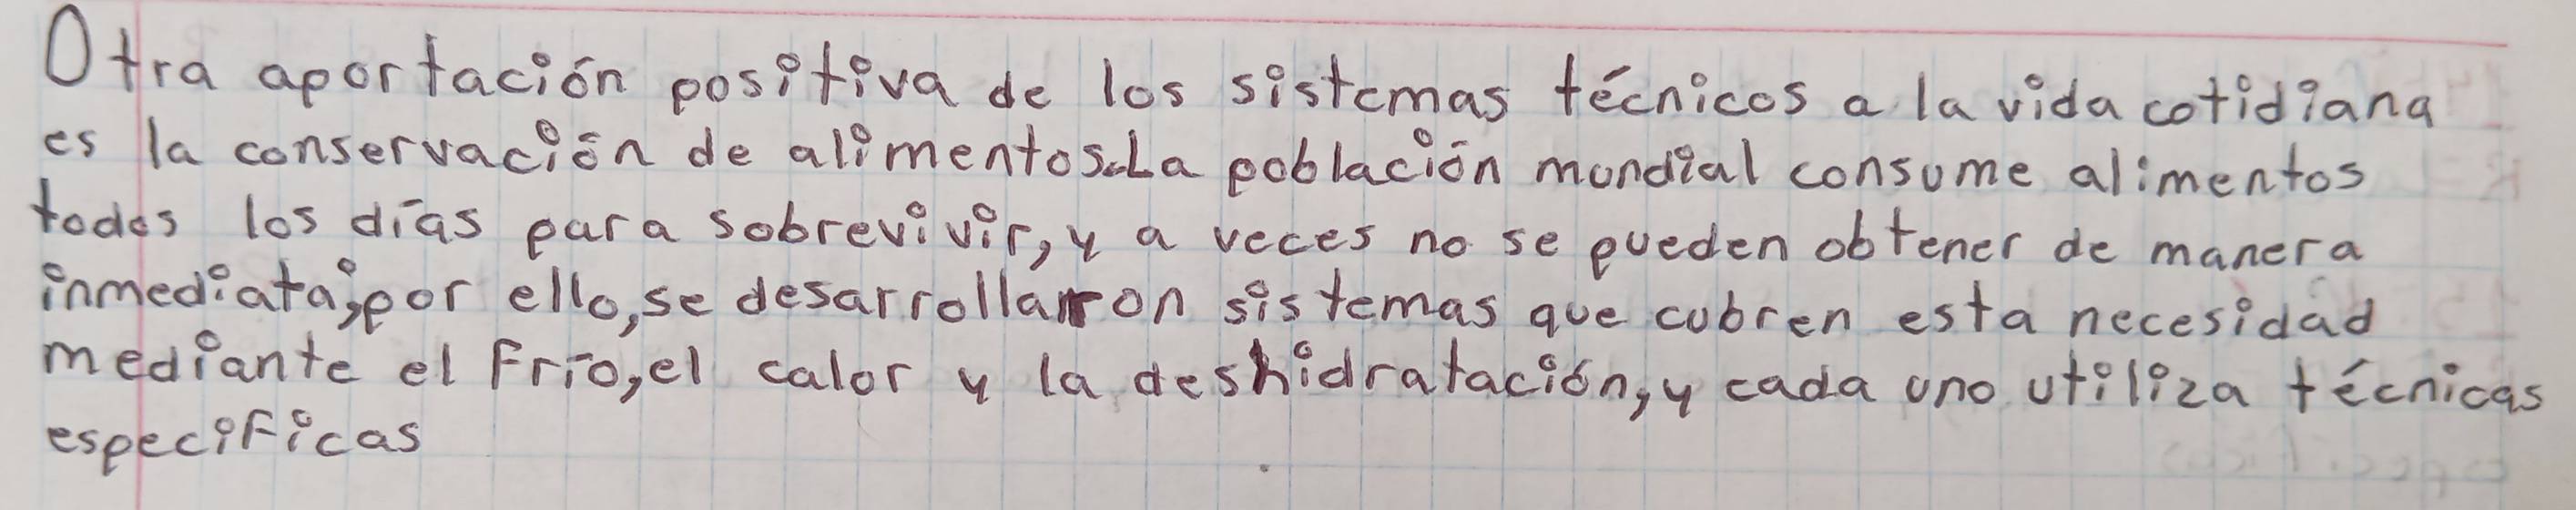 Otra aportación positiva de los sistemas técnicos a la vida cotidiana
es la conservación de alimentos. La población mundial consume alimentos
todos los días para sobrevivir, y a veces no se pueden obtener de manera
inmediata; por ello, se desarrollaron sistemas que cubren esta necesidad
mediante el frío, el calor y la deshidratación, y cada uno utiliza técnicas
especificas